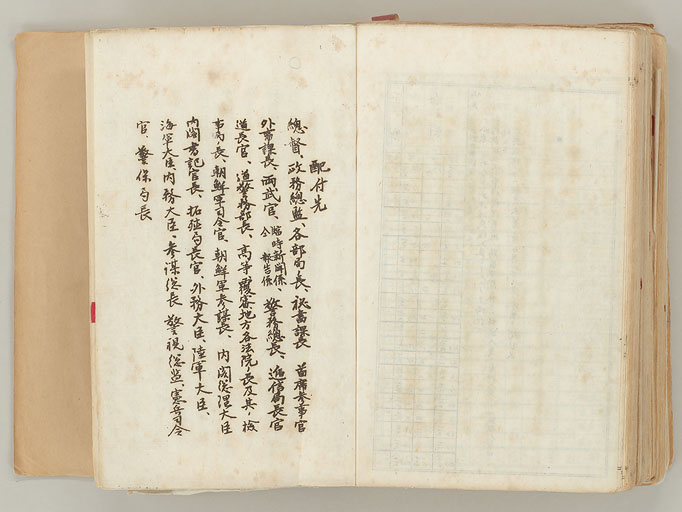 配付先
總督、政務總監 各部局長、秘書課長 首席參事官
外事課長、両武官、臨時新聞係、仝 報告係、警務總長、逓信局長官
道長官、道警務部長、高等覆審地方各法院ノ長及其ノ檢
事局長、朝鮮軍司令官、朝鮮軍參謀長、内閣総理大臣
内閣書記官長、拓殖局長官、外務大臣、陸軍大臣、
海軍大臣、内務大臣、參謀総長 警視総監、憲兵司令
官、警保局長